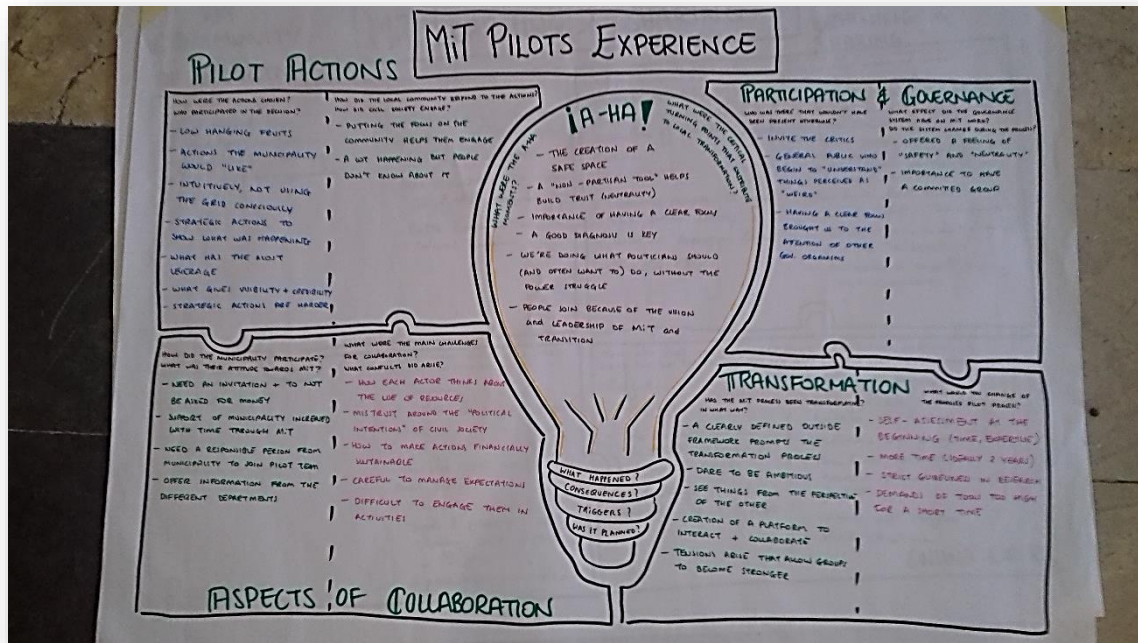 MiT PILOTS EXPERIENCE
PILOT ACTIONS
HOW WERE THE ACTIONS CHOSEN?
WHO PARTICIPATED IN THE DECISION?
- LOW HANGING FRUITS
- ACTIONS THE MUNICIPALITY
WOULD "LIKE"
- INTUITIVELY, NOT USING
THE GRID CONSCIOUSLY
- STRATEGIC ACTIONS TO
SHOW WHAT WAS HAPPENING
- WHAT HAS THE MOST
LEVERAGE
- WHAT GIVES VISIBILITY + CREDIBILITY
- STRATEGIC ACTIONS ARE HARDER
HOW DID THE LOCAL COMMUNITY RESPOND TO THE ACTIONS?
HOW DID CIVIL SOCIETY ENGAGE?
- PUTTING THE FOCUS ON THE
COMMUNITY HELPS THEM ENGAGE
- A LOT HAPPENING BUT PEOPLE
DON'T KNOW ABOUT IT
¡A-HA!
WHAT WERE THE A-HA
MOMENTS?
WHAT WERE THE CRITICAL
TURNING POINTS THAT CONTRIBUTE
TO LOCAL TRANSFORMATION?
- THE CREATION OF A
SAFE SPACE
- A "NON-PARTISAN TOOL" HELPS
BUILD TRUST (NEUTRALITY)
- IMPORTANCE OF HAVING A CLEAR FOCUS
- A GOOD DIAGNOSIS IS KEY
- WE'RE DOING WHAT POLITICIANS SHOULD
(AND OFTEN WANT TO) DO, WITHOUT THE
POWER STRUGGLE
- PEOPLE JOIN BECAUSE OF THE VISION
and LEADERSHIP OF MiT and
TRANSITION
WHAT HAPPENED?
CONSEQUENCES?
TRIGGERS?
WAS IT PLANNED?
PARTICIPATION & GOVERNANCE
WHO WAS THERE THAT WOULDN'T HAVE
BEEN PRESENT OTHERWISE?
- INVITE THE CRITICS
- GENERAL PUBLIC WHO
BEGIN TO "UNDERSTAND"
THINGS PERCEIVED AS
"WEIRD"
- HAVING A CLEAR FOCUS
BROUGHT US TO THE
ATTENTION OF OTHER
GOV. ORGANISMS
WHAT EFFECT DID THE GOVERNANCE
SYSTEM HAVE ON MiT WORK?
DID THE SYSTEM CHANGE DURING THE PROCESS?
- OFFERED A FEELING OF
"SAFETY" AND "NEUTRALITY"
- IMPORTANCE TO HAVE
A COMMITTED GROUP
HOW DID THE MUNICIPALITY PARTICIPATE?
WHAT WAS THEIR ATTITUDE TOWARDS MiT?
- NEED AN INVITATION + TO NOT
BE ASKED FOR MONEY
- SUPPORT OF MUNICIPALITY INCREASED
WITH TIME THROUGH MiT
- NEED A RESPONSIBLE PERSON FROM
MUNICIPALITY TO JOIN PILOT TEAM
- OFFER INFORMATION FROM THE
DIFFERENT DEPARTMENTS
WHAT WERE THE MAIN CHALLENGES
FOR COLLABORATION?
WHAT CONFLICTS DID ARISE?
- HOW EACH ACTOR THINKS ABOUT
THE USE OF RESOURCES
- MISTRUST AROUND THE "POLITICAL
INTENTIONS" OF CIVIL SOCIETY
- HOW TO MAKE ACTIONS FINANCIALLY
SUSTAINABLE
- CAREFUL TO MANAGE EXPECTATIONS
- DIFFICULT TO ENGAGE THEM IN
ACTIVITIES
ASPECTS OF COLLABORATION
TRANSFORMATION
HAS THE MiT PROCESS BEEN TRANSFORMATIVE?
IN WHAT WAY?
- A CLEARLY DEFINED OUTSIDE
FRAMEWORK PROMPTS THE
TRANSFORMATION PROCESS
- DARE TO BE AMBITIOUS
- SEE THINGS FROM THE PERSPECTIVE
OF THE OTHER
- CREATION OF A PLATFORM TO
INTERACT + COLLABORATE
- TENSIONS ARISE THAT ALLOW GROUPS
TO BECOME STRONGER
WHAT WOULD YOU CHANGE OF
THE PILOT PROCESS?
- SELF-ASSESSMENT AT THE
BEGINNING (TIME, EXPERTISE)
- MORE TIME (IDEALLY 2 YEARS)
- STRICT IN RESEARCH
- DEMANDS OF TOOLS TOO HIGH
FOR A SHORT TIME